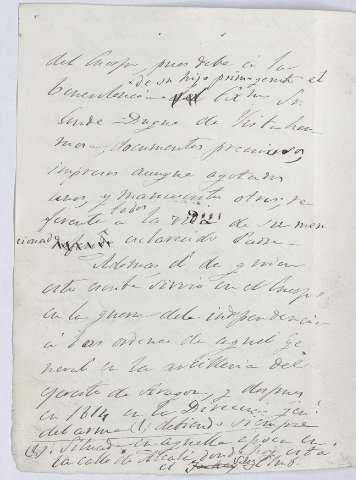 del Cuerpo, pues debe á la
de su hijo primogenito el
benevolencia Exmo Sr
Conde Duque de Vista her
mosa, documentos preciosos,
impresos aunque agotados
unos, y manuscritos otros, re
ferente todos á la de su men
cionado esclarecido Padre.
Ademas el de quien
esto escribe sirvió en el Cuerpo
en la guerra de la independencia
á las ordenes de aquel ge
neral en la artilleria del
ejercito de Aragon, y despues
en 1814 en la Direccion jral.
del arma (1) debiendo siempre
(1). Situada en aquella epoca en
la calle de Alcalá donde hoy está
el